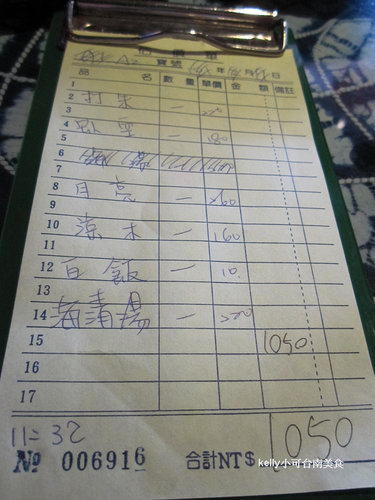 估價單
寶號 年 月 日
品 名 數 量 單價 金 額 備註
1
2 打 朱 一
3
4 卧 一 180
5
6
7
8 月 亮 一 260
9
10 涼 木 一 160
11
12 白 飯 一 10
13
14 海 湯 一 220
15 1050
16
17
11=32
№ 006916 合計NT$ 1050
kelly小可台南美食